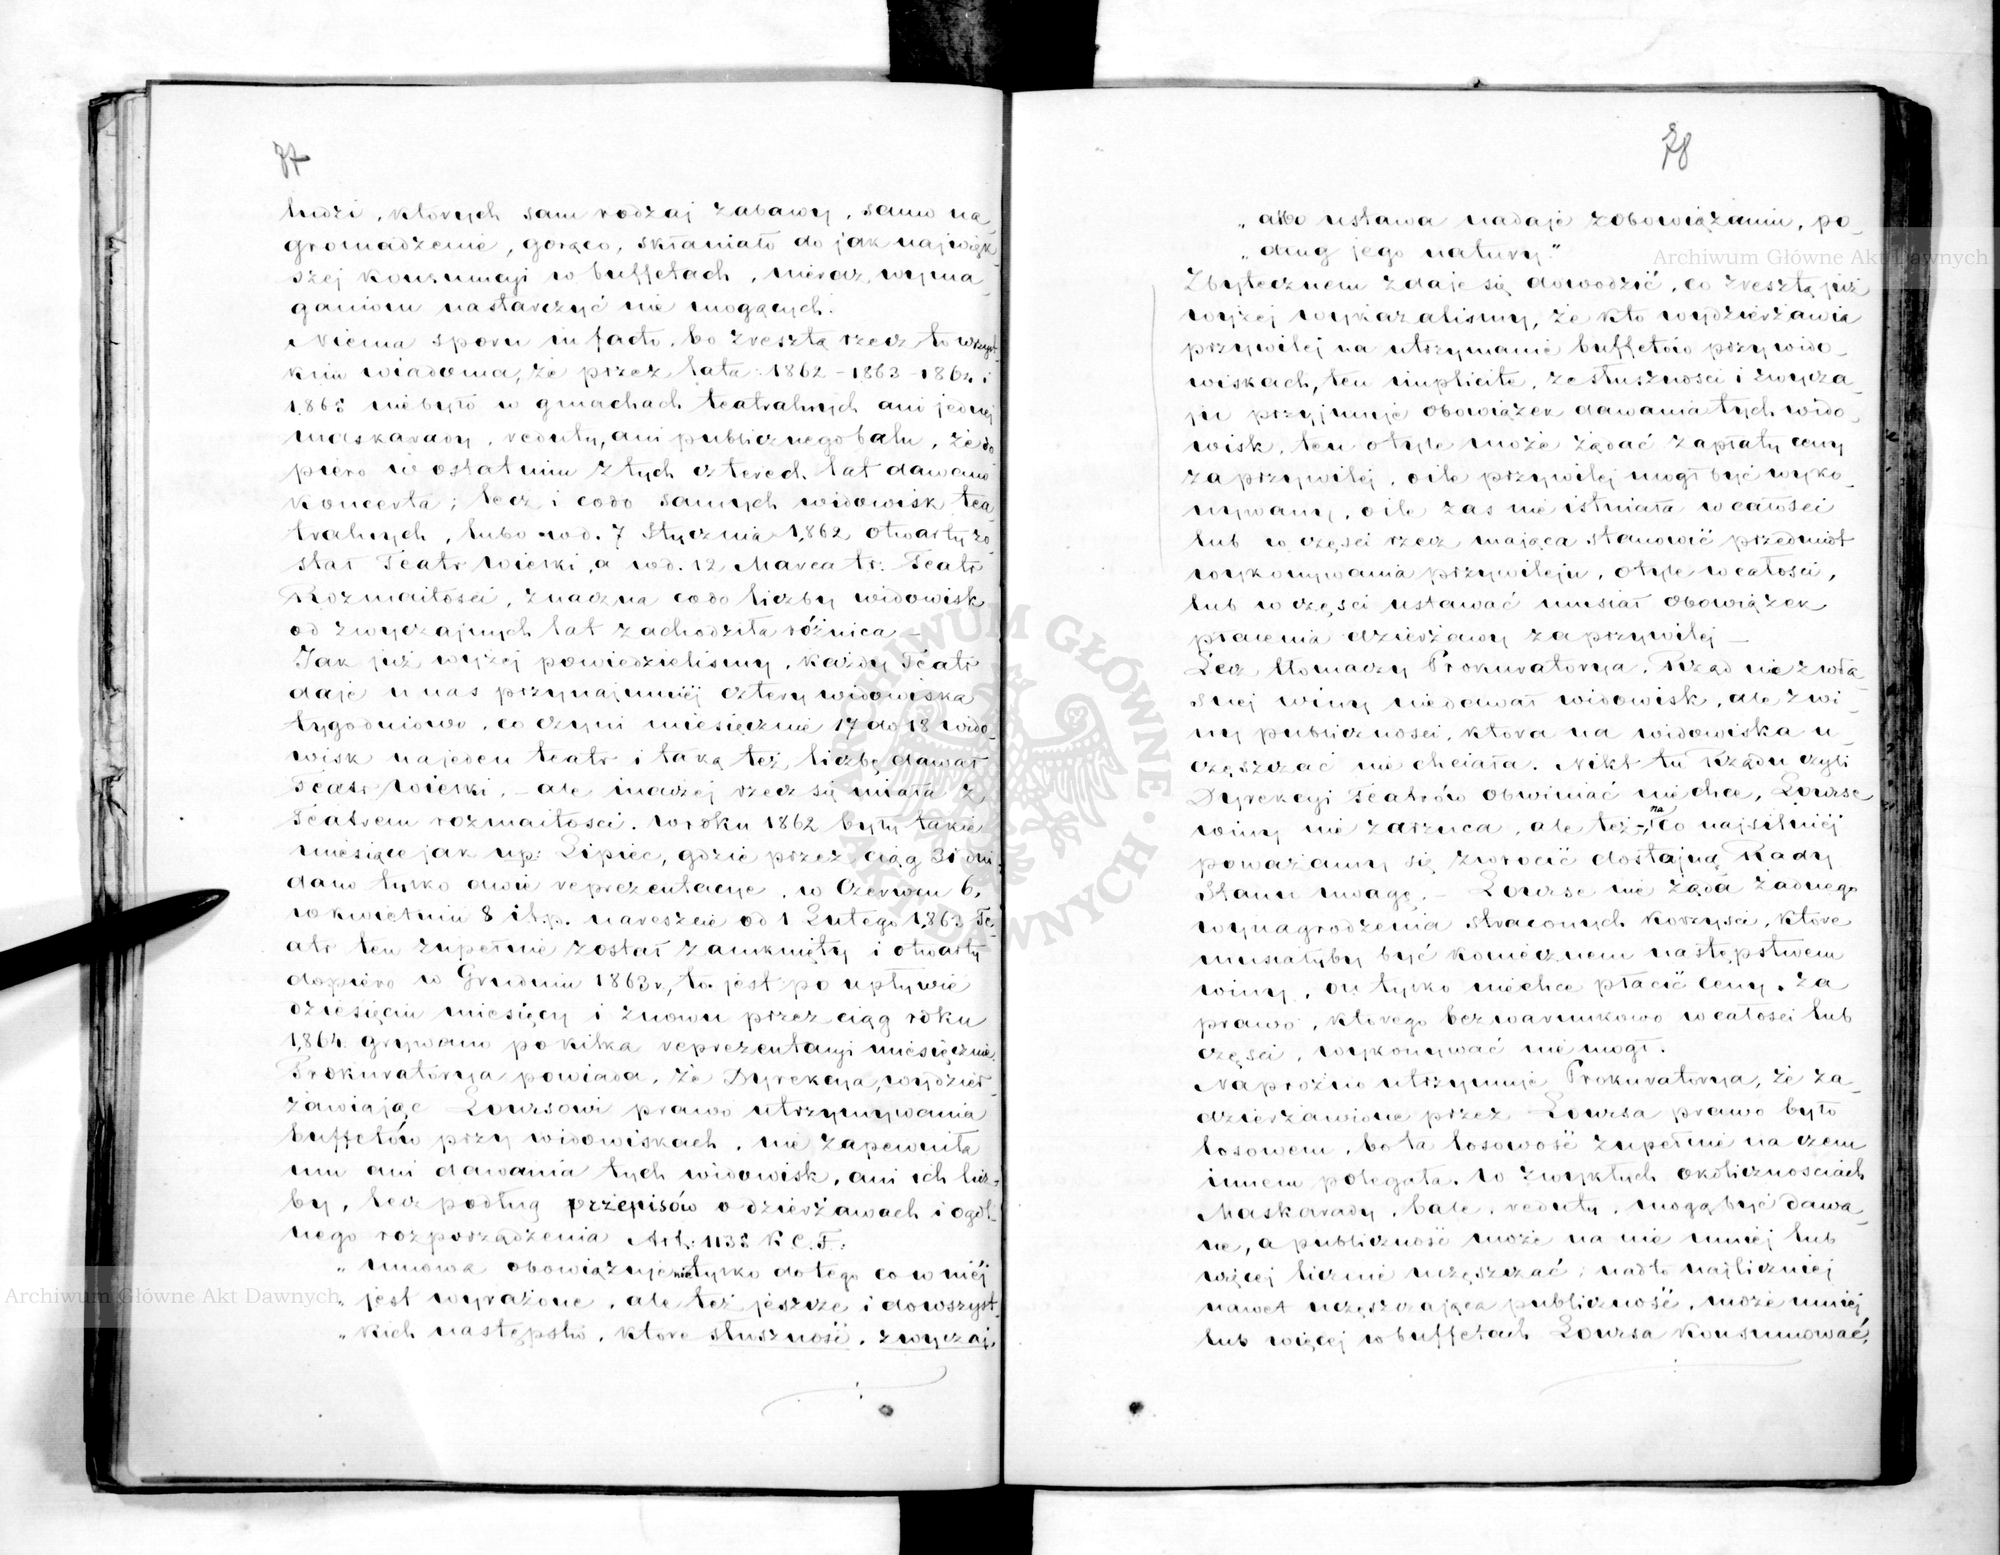 37
ludzi, których sam rodzaj zabawy, samo na-
gromadzenie, gorąco, skłaniało do jak najwięk-
szej konsumcyi w buffetach, nieraz, wyma-
ganiom nastarczyć nie mogących.
Niema sporu in facto, bo zresztą rzecz to wszyst-
kim wiadoma, że przez lata: 1862 - 1863 - 1864 i
1865 niebyło w gmachach teatralnych ani jednej
maskarady, reduty, ani publicznego balu, że do
piero w ostatnim z tych czterech lat dawano
koncerta; lecz i codo samych widowisk tea-
tralnych, lubo w d. 7 Stycznia 1862 otwarty zo-
stał Teatr Wielki, a w d. 12 Marca t.r. Teatr
Rozmaitości, znaczna codo liczby widowisk
od zwyczajnych lat zachodziła różnica —
Jak już wyżej powiedzieliśmy, każdy Teatr
daje u nas przynajmniej cztery widowiska
tygodniowo, co czyni miesięcznie 17 do 18 wido-
wisk na jeden teatr i taką też liczbę dawał
Teatr Wielki, — ale inaczej rzecz się miała z
Teatrem rozmaitości. W roku 1862 były takie
miesiące jak np: Lipiec, gdzie przez ciąg 31 dni
dano tylko dwie reprezentacye, w Czerwcu 6,
w kwietniu 8 i t.p. nareszcie od 1 Lutego 1863 Te-
atr ten zupełnie został zamknięty i otwarty
dopiero w Grudniu 1863 r, to jest po upływie
dziesięciu miesięcy i znowu przez ciąg roku
1864 grywano po kilka reprezentacyi miesięcznie.
Prokuratorya powiada, że Dyrekcya, wydzier-
żawiając Loursowi prawo utrzymywania
buffetów przy widowiskach, nie zapewniła
mu ani dawania tych widowisk, ani ich licz-
by, lecz podług przepisów o dzierżawach i ogól-
nego rozporządzenia Art: 1135 K.C.F.:
„ umowa obowiązuje nietylko do tego co w niéj
„ jest wyrażone, ale też jeszcze i dowszyst-
„ kich następstw, które słuszność, zwyczaj,
78
„ albo ustawa nadaje zobowiązaniu, po-
„ dług jego natury."
Zbytecznem zdaje się dowodzić, co zresztą już
wyżej wykazaliśmy, że kto wydzierżawia
przywilej na utrzymanie buffetów przy wido-
wiskach, ten implicite, ze słuszności i zwycza-
ju przyjmuje obowiązek dawania tych wido-
wisk, ten o tyle może żądać zapłaty ceny
za przywilej, o ile przywilej mógł być wyko-
nywany, o ile zaś nie istniała w całości
lub w części rzecz mająca stanowić przedmiot
wykonywania przywileju, o tyle w całości,
lub w części ustawać musiał obowiązek
płacenia dzierżawy za przywilej —
Lecz tłomaczy Prokuratorya, Rząd nie z wła-
snej winy niedawał widowisk, ale z wi-
ny publiczności, która na widowiska u-
częszczać nie chciała. Nikt tu Rządu czyli
Dyrekcyi Teatrów obwiniać nie chce, Lourse
winy nie zarzuca, ale też — na to najsilniéj
poważamy się zwrócić dostojną Rady
Stanu uwagę, — Lourse nie żąda żadnego
wynagrodzenia straconych korzyści, które
musiałyby być koniecznem następstwem
winy, on tylko niechce płacić ceny, za
prawo, którego bezwarunkowo w całości lub
części, wykonywać nie mógł.
Napróżno utrzymuje Prokuratorya, że za-
dzierżawione przez Loursa prawo było
losowem, bo ta losowość zupełnie na czem
innem polegała. W zwykłych okolicznościach
Maskarady, bale, reduty, mogą być dawa-
ne, a publiczność może na nie mniéj lub
więcej licznie uczęszczać; nadto najliczniej
nawet uczęszczająca publiczność, może mniej
lub więcej w buffetach Loursa konsumować,
Archiwum Główne Akt Dawnych
Archiwum Główne Akt Dawnych
ARCHIWUM GŁÓWNE AKT DAWNYCH